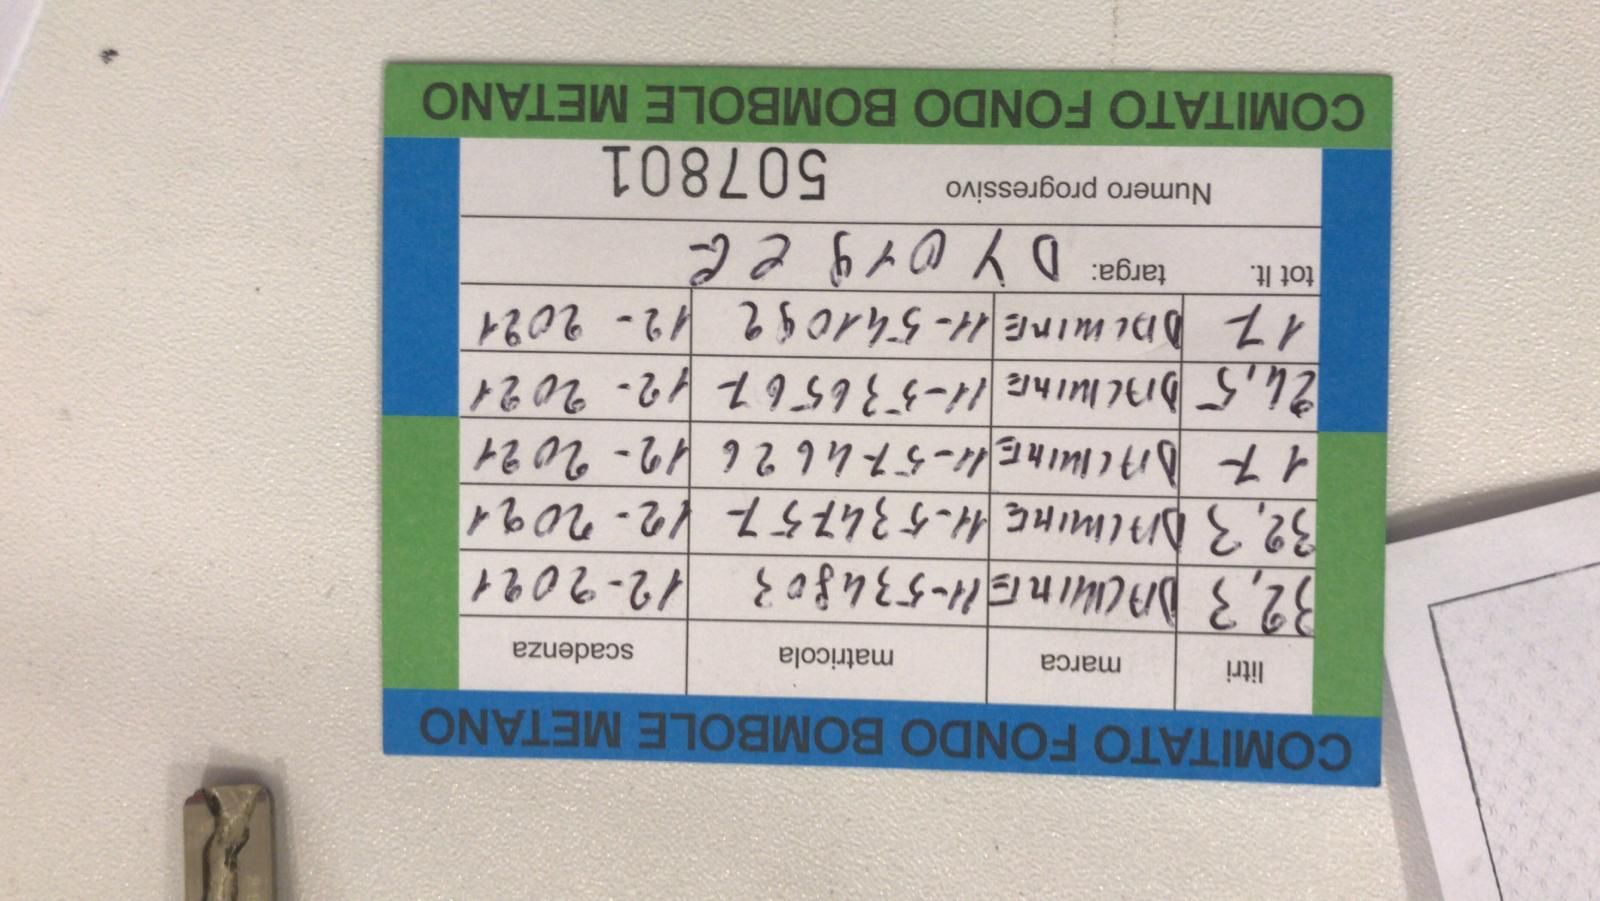 COMITATO FONDO BOMBOLE METANO
litri marca matricola scadenza
32,3 DALMINE 11-534803 12-2021
32,3 DALMINE 11-534757 12-2021
17 DALMINE 11-574626 12-2021
24,5 DALMINE 11-536567 12-2021
17 DALMINE 11-541092 12-2021
tot lt. targa: DY019EE
Numero progressivo 507801
COMITATO FONDO BOMBOLE METANO